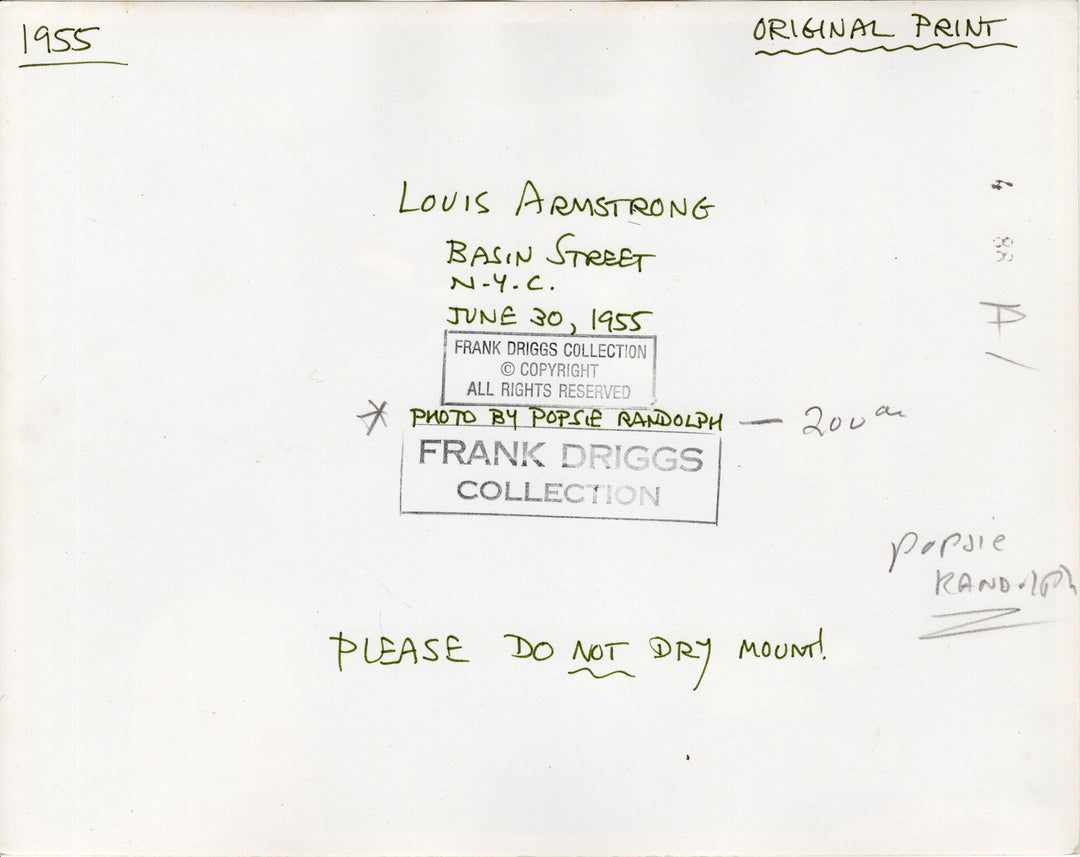 1955
ORIGINAL PRINT
LOUIS ARMSTRONG
BASIN STREET
N.Y.C.
JUNE 30, 1955
FRANK DRIGGS COLLECTION
© COPYRIGHT
ALL RIGHTS RESERVED
* PHOTO BY POPSIE RANDOLPH — 200
FRANK DRIGGS
COLLECTION
popsie
RANDOLPH
PLEASE DO NOT DRY MOUNT!